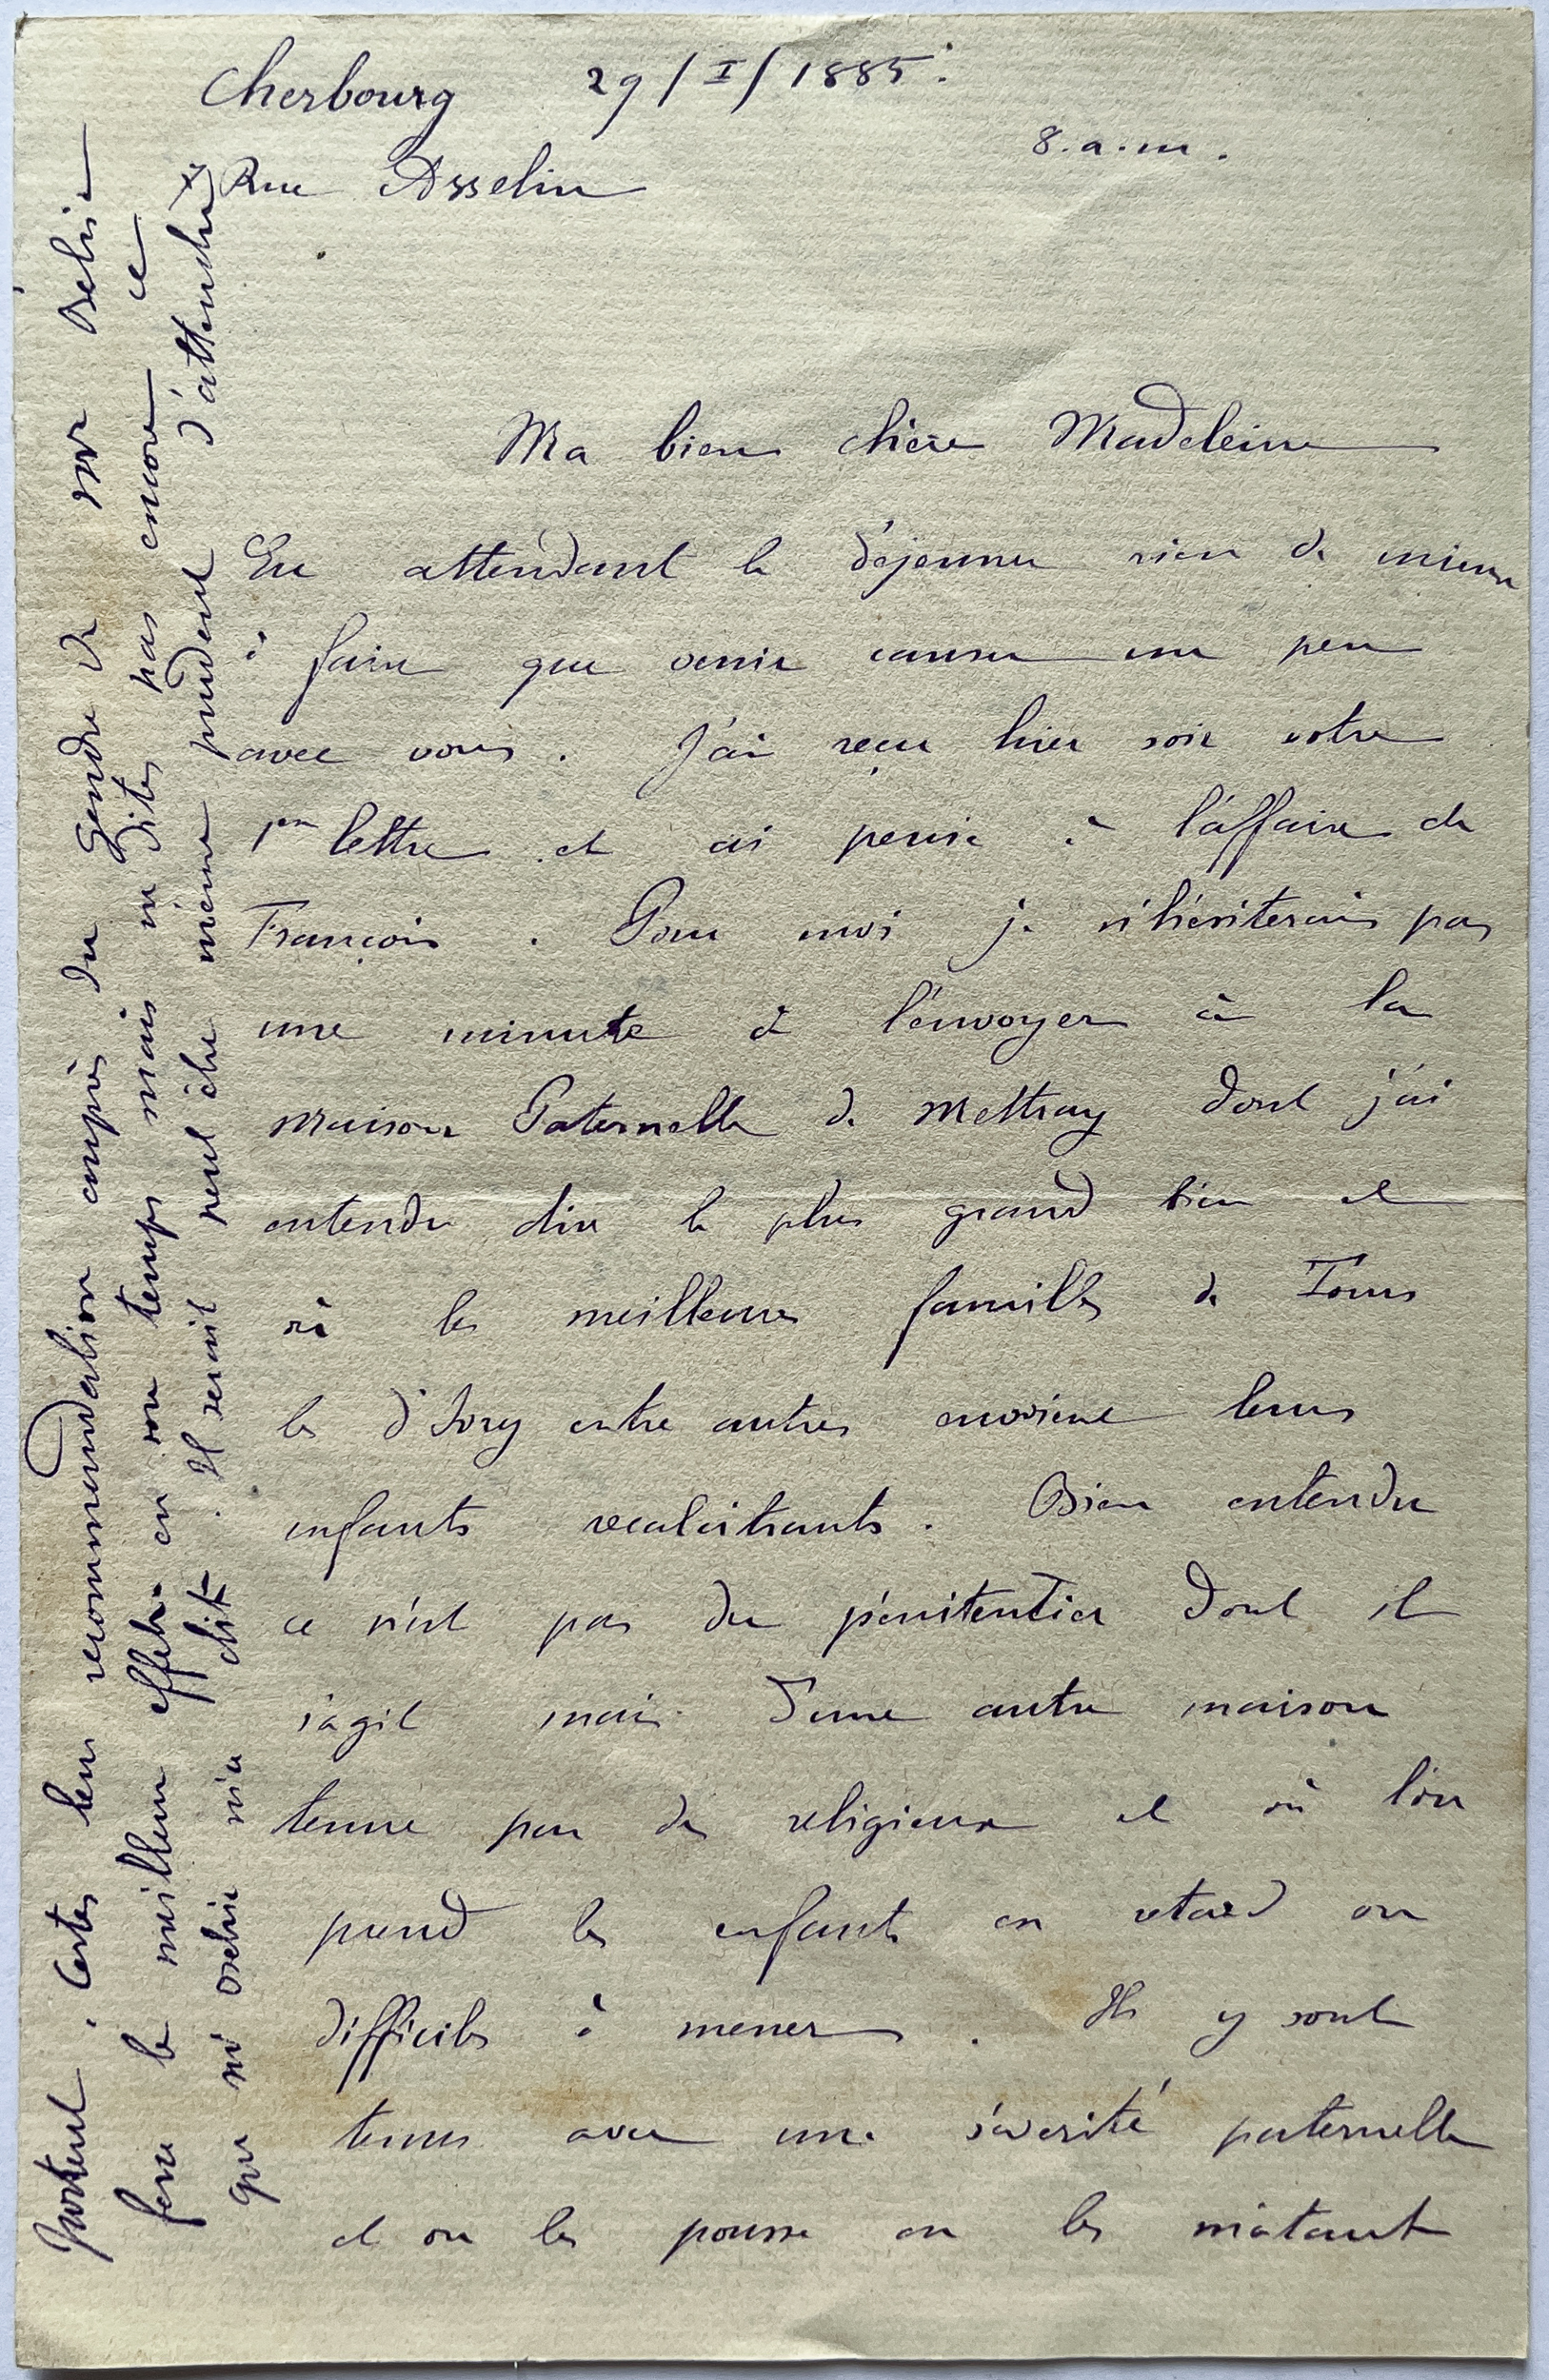 Cherbourg 29/I/1885.
8.a.m.
Rue Asselin
Ma bien chère Madeleine
En attendant le déjeuner rien de mieux
à faire que venir causer un peu
avec vous. J'ai reçu hier soir votre
1ère lettre et ai pensé à l'affaire de
François. Pour moi je n'hésiterais pas
une minute à l'envoyer à la
Maison Paternelle de Mettray dont j'ai
entendu dire le plus grand bien et
où les meilleures familles de Tours
les d'Ivry entre autres envoient leurs
enfants recalcitrants. Bien entendu
ce n'est pas du pénitentier dont il
s'agit mais d'une autre maison
tenue par des religieux et où l'on
prend les enfants en retard ou
difficiles à mener. Ils y sont
tenus avec une sévérité paternelle
et on les pousse en les mâtant
portent. Certes leur recommandation auprès du gendre de
fera le meilleur effet en son temps mais ne dites pas encore ce
que ni ni dit. Il serait peut être même prudent d'attendre